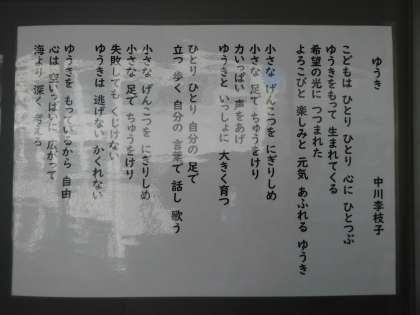 ゆうき　中川李枝子
こどもは ひとり ひとり 心に ひとつぶ
ゆうきをもって 生まれてくる
希望の光に つつまれた
よろこびと 楽しみと 元気 あふれる ゆうき
小さな げんこつを にぎりしめ
小さな 足で ちゅうをけり
力いっぱい 声をあげ
ゆうきと いっしょに 大きく育つ
ひとり ひとり 自分の 足で
立つ 歩く 自分の 言葉で 話し 歌う
小さな げんこつを にぎりしめ
小さな 足で ちゅうをけり
失敗しても くじけない
ゆうきは 逃げない かくれない
ゆうきを もっているから 自由
心は 空いっぱいに 広がって
海より 深く 考える